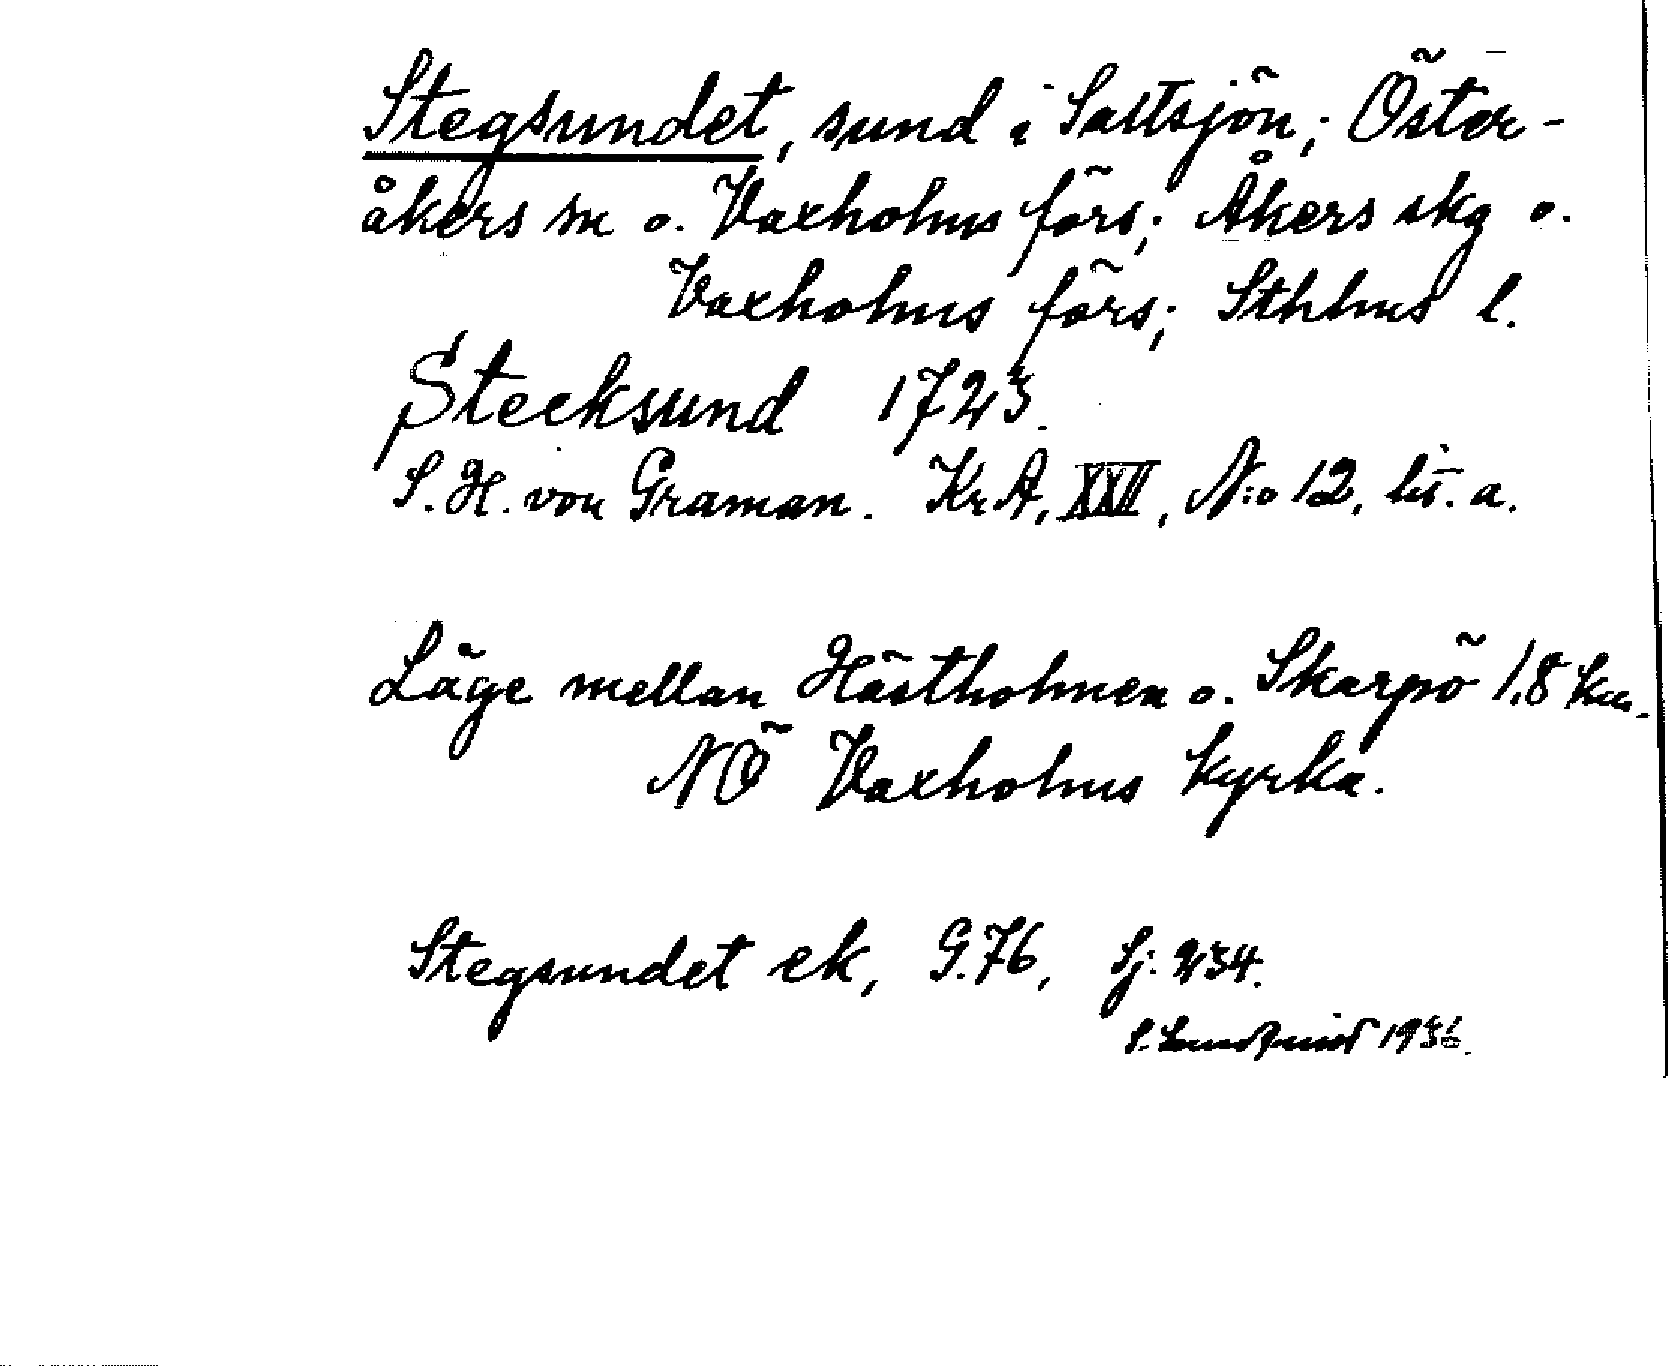 Stegsundet, sund i Saltsjön; Öster-
åkers sn o. Vaxholms förs; Åkers skg o.
Vaxholms förs; Sthlms l.
Stecksund 1723.
S. H. von Graman. KrA, XXII, N:o 12, lit. a.
Läge mellan Hästholmen o. Skarpö 1,8 km.
NÖ Vaxholms kyrka.
Stegsundet ek, G.76, Sj. 234.
S. 1936.